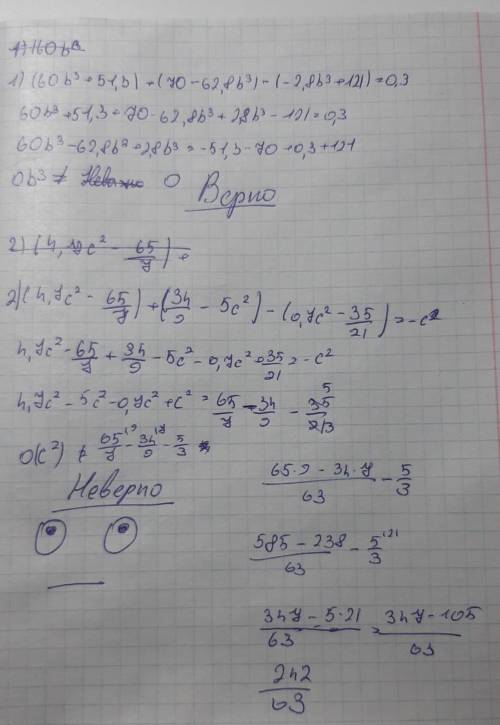 1) 160b³
1) (60b³ + 51,3) + (70 - 62,8b³) - (-2,8b³ + 121) = 0,3
60b³ + 51,3 + 70 - 62,8b³ + 2,8b³ - 121 = 0,3
60b³ - 62,8b² + 2,8b³ = -51,3 - 70 + 0,3 + 121
0b³ ≠ 0 Верно
2) (4,7c² - 65/7) +
2) (4,7c² - 65/7) + (34/9 - 5c²) - (0,7c² - 35/21) = -c²
4,7c² - 65/7 + 34/9 - 5c² - 0,7c² + 35/21 = -c²
4,7c² - 5c² - 0,7c² + c² = 65/7 - 34/9 - 35/21 5 3
0(c²) ≠ 65/7 - 34/9 - 5/3
Неверно
(65·9 - 34·7)/63 - 5/3
(585 - 238)/63 - 5/3
(347 - 5·21)/63 = (347 - 105)/63
242/63